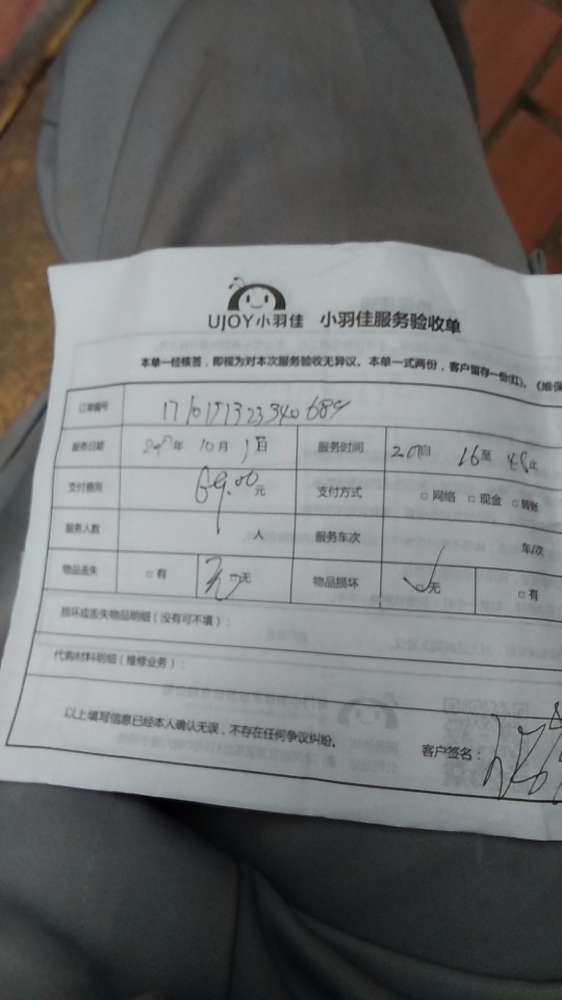 UJOY小羽佳 小羽佳服务验收单
本单一经核签，即视为对本次服务验收无异议。本单一式两份，客户留存一份(红)。《维保
订单编号
服务日期 年 10月 日 服务时间
支付费用 69.00元 支付方式 □网络 □现金 □转账
服务人数 1人 服务车次 车/次
物品丢失 □有 □无 物品损坏 □无 □有
损坏或丢失物品明细（没有可不填）：
代购材料明细（维修业务）：
以上填写信息已经本人确认无误，不存在任何争议纠纷。 客户签名：